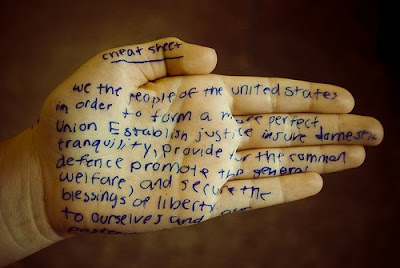 cheat sheet
We the people of the united states
in order to form a more perfect
Union Establish justice insure domestic
tranquility, provide for the common
defence promote the general
welfare, and secure the
blessings of liberty
to ourselves and our